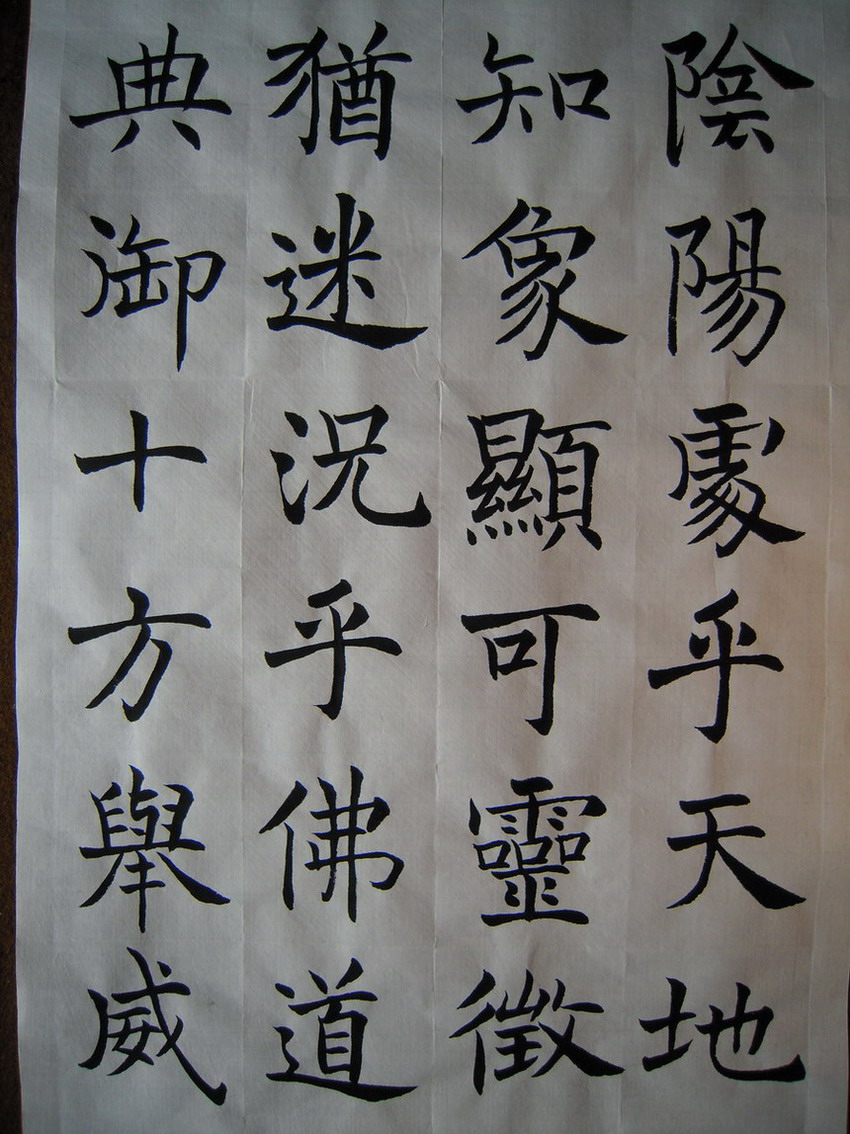 陰陽處乎天地
知象顯可靈徵
猶迷況乎佛道
典御十方舉威